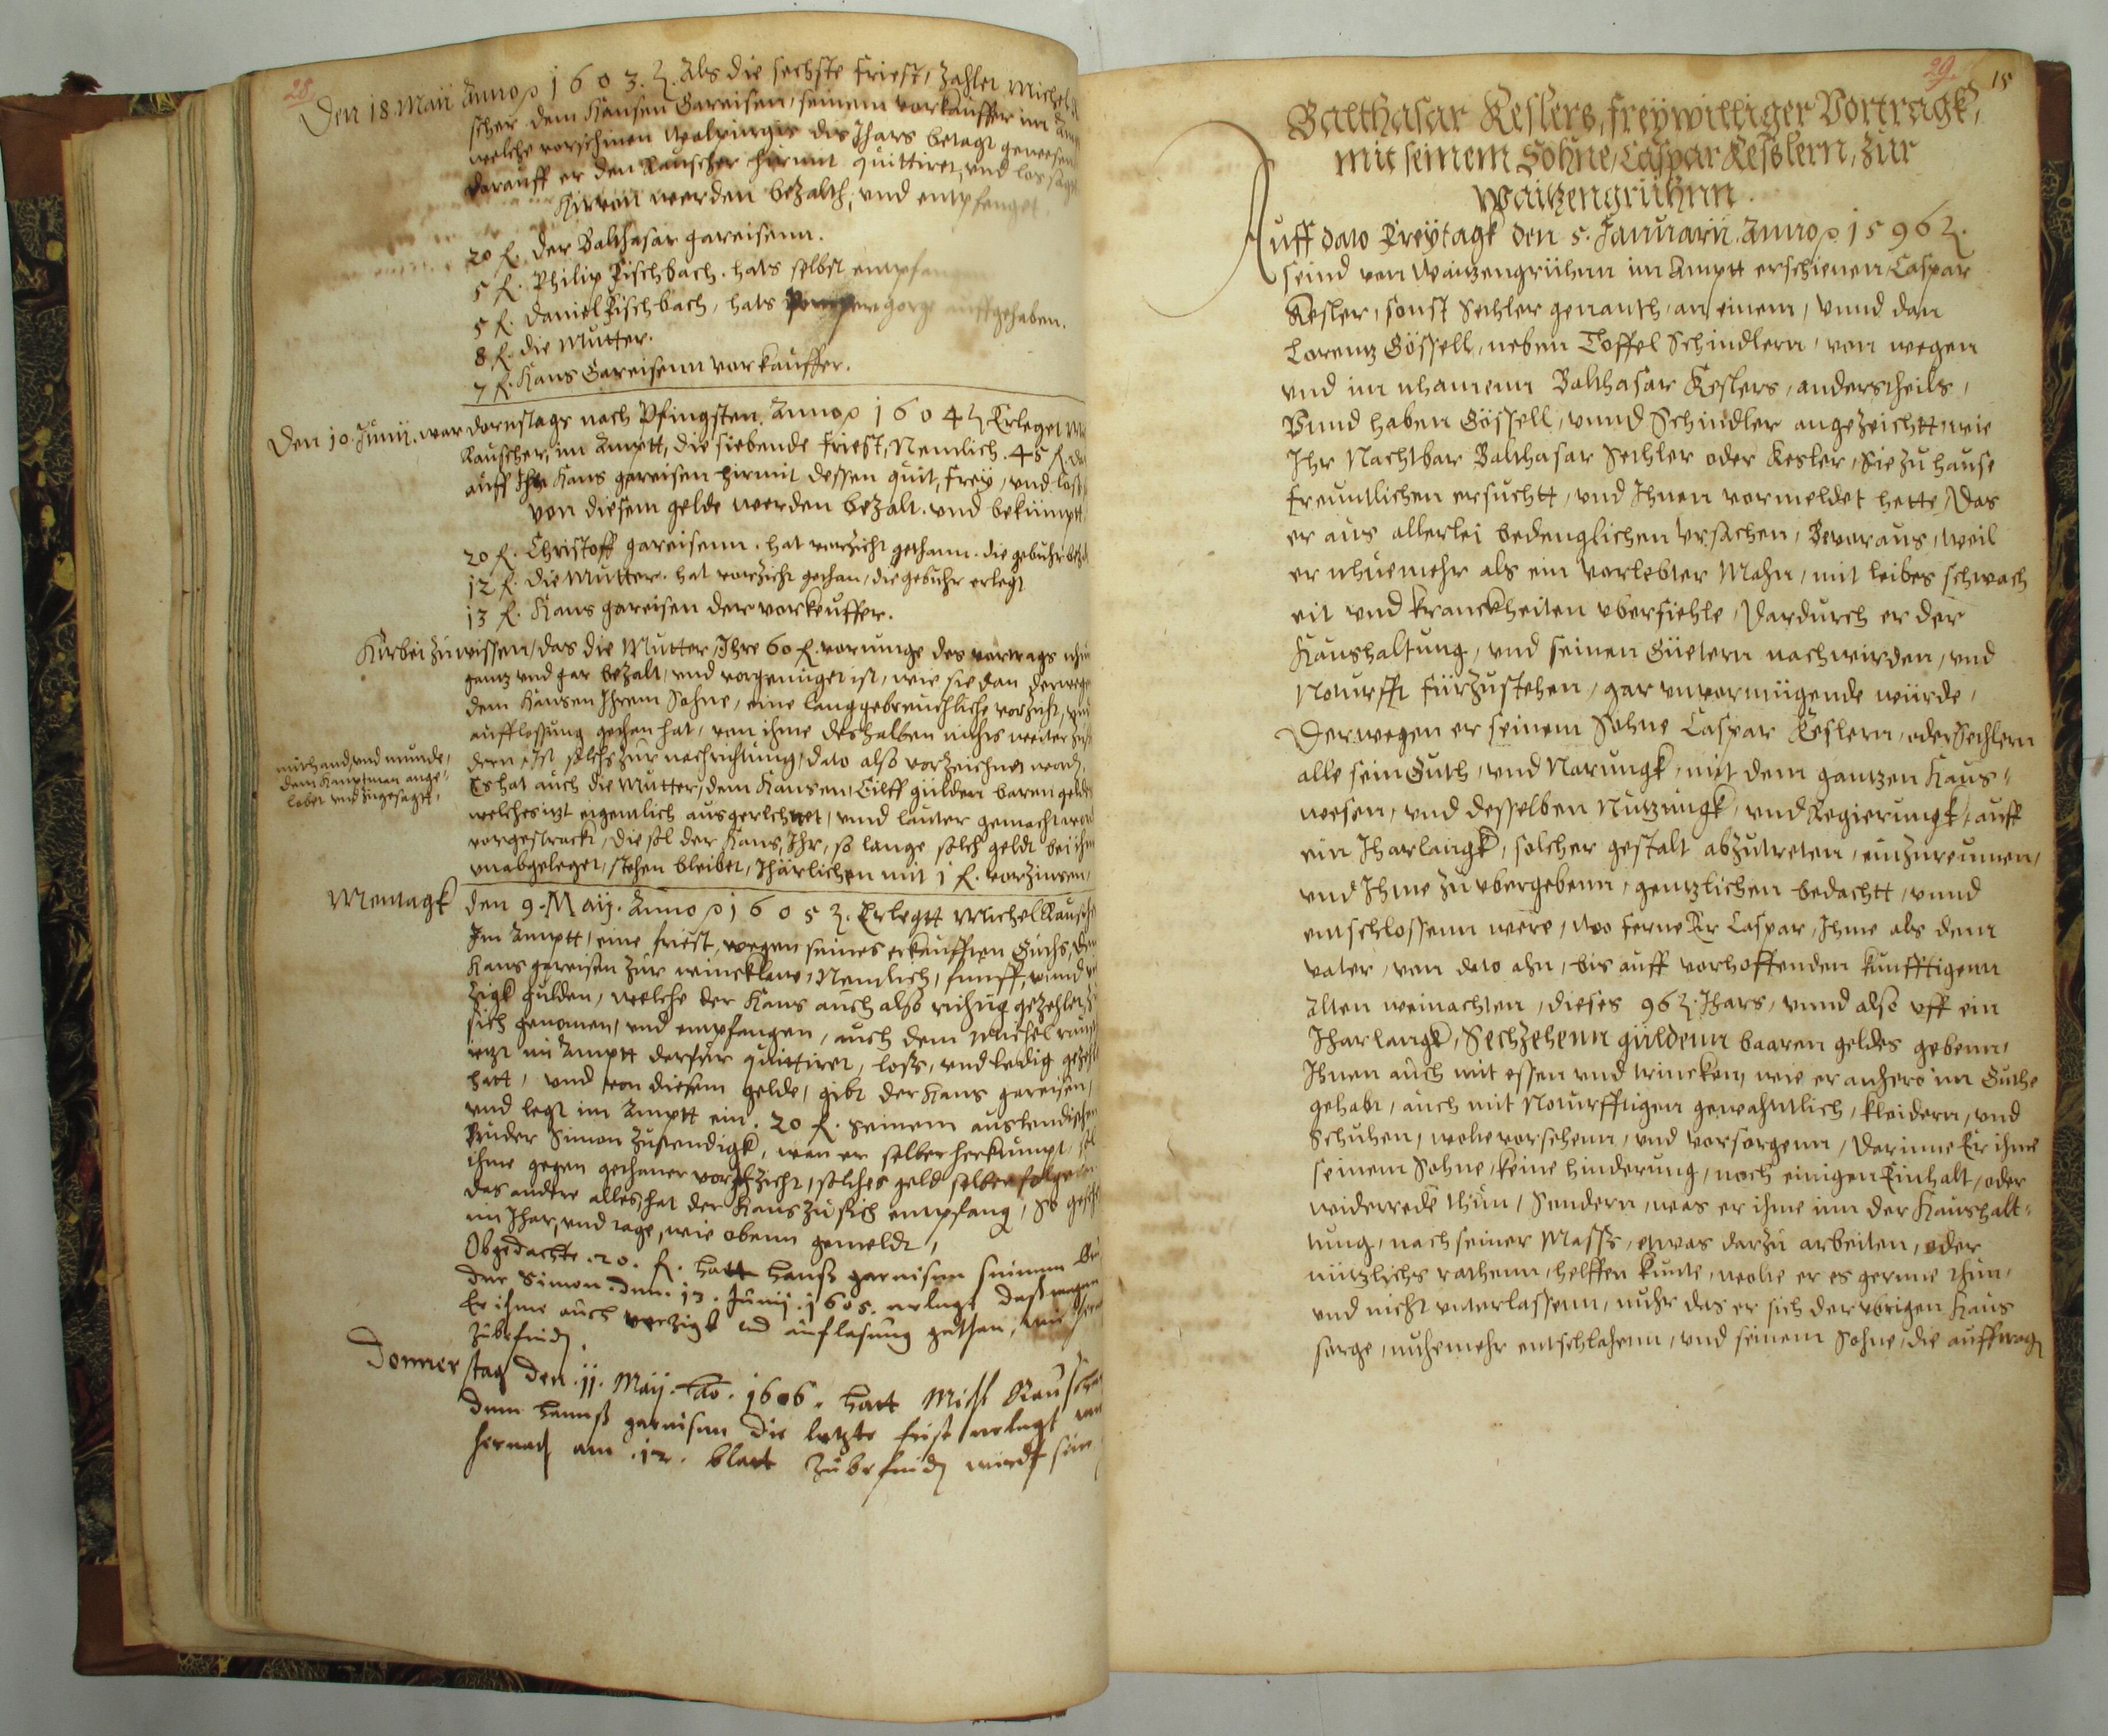 28
Den 18 Maii Anno 1603. Als die sechste friest, zahlet Michel
scher dem Hansen Gareisen, seinem vorkauffer im Am
welche vorschinen Walpurgis dis Jhars betagt gewesen
darauff er den Rauscher hirmit quittiret, und los sagt
Hirvon werden bezalth, und empfenget.
20 f. der Balthasar gareisenn.
5 f. Philip Fischbach. hats selbst empfan
5 f. Daniel Fischbach, hats gorg auffgehaben.
8 f. die Mutter.
7 f. Hans Gareisenn vorkauffer.
Den 10. Junii. war dornstags nach Pfingsten. Anno 1604 Erleget
Rauscher, im Amptt, die siebende friest, Nemlich. 45 f. da
auff Ihn Hans gareisen hirmit dessen quit, frey, und loß
von diesem gelde werden bezalt. und bekümptt
20 f. Christoff gareisenn. hat vorzicht gethann. die gebuhr bez
12 f. die Mutter. hat vorzicht gethan, die gebuhr erlegt
13 f. Hans gareisen der vorkeuffer.
Hirbei zuwissen, das die Mutter, Ihre 60 f. vormuge des vortrags
gentz und gar bezalt, und vorgenuget ist, wie sie dan derwege
dem Hansen Ihrem Sohne, eine langgebreuchliche vorzicht, und
aufflossung gethan hat, von ihme deshalben nichts weiter zu
dern, Ist solchs zur nachrichtung, dato also vorzeichnet word
mit hand, und munde,
dem Hauptman ange-
lobet und zugesagtt,
Es hat auch die Mutter, dem Hansen, Eilff gülden baren geld
welches itzt eigentlich ausgerechnet, und lauter gemacht word
vorgestrackt, die sol der Hans, Ihr, so lange solch geldt bei ihm
unabgeleget, stehen bleibet, Jhärlichen mit 1 f. vorzinsen,
Montagk den 9. Maij. Anno 1605. Erlegtt Michel Rausche
Im Amptt, eine friest, wegen seines erkaufften Guths, den
Hans gareisen zur wincklaus, Nemlich, funff, unnd
zigk gulden, welche der Hans auch also richtig gezehlet zu
sich genomen, und empfangen, auch dem Michel raus
itzt im Amptt derfür quittiret, loß, und ledig gezeh
hatt, und von diesem gelde, gibt der Hans gareisen,
und legt im Amptt ein. 20 f. seinem auslendischen
Bruder Simon zustendigk, wan er selber herkumpt, sol
ihme gegen gethaner vorzicht, solches geld selber folge
das andere alles, hat der Hans zu sich empfang, So gesch
im Jhar, und tage, wie obenn gemeldt,
Obgedachte. 20. f. hatt Hanß gareisen seinem Bru
der Simon. den. 13. Junij. 1605. erlegt, deßwegen
Er ihme auch verzigk und auflasung gethan, wie
zubefinden.
Donnerstag den. 11. Maij. Ao. 1606. hatt Michl Rausche
dem Hannß gareisen die letzte frist erlegt wie
hernach am. 12. blatt zubefinden wirdt sein
29
15
Balthasar Keslers, freywilliger Vortragk,
mit seinem Sohne, Caspar Kesslern, zur
Waitzengrühnn.
Auff dato Freytagk den 5. Januarii. Anno 1596.
seind von Waitzengrühnn im Amptt erschienen, Caspar
Kesler, sonst Sechler genanth, an einem, unnd dan
Lorentz Gössell, neben Toffel Schindlern, von wegen
und im nhamenn Balthasar Keslers, anderstheils,
Vnnd haben Gössell, unnd Schindler angezeichtt, wie
Ihr Nachtbar Balthasar Sechler oder Kesler, Sie zu hause
freuntlichen ersuchtt, und Ihnen vormeldet hette, Das
er aus allerlei bedenglichen ursachen, Bevoraus, weil
er nhuemehr als ein vorlebter Mahn, mit leibes schwach
eit und kranckheiten uberfiehle, Dardurch er der
Haushaltung, und seinen Güetern nachwirden, und
Noturfft fürzustehen, gar unvormügende würde,
Derwegen er seinem Sohne Caspar Keslern, oder Sechlern
alle sein Guth, und Narungk, mit dem gantzen Haus-
wesen, und desselben Nutzungk, und Regierungk, auff
ein Jharlangk, solcher gestalt abzutreten, einzureumen,
und Ihme zu ubergebenn, gentzlichen bedachtt, unnd
entschlossenn were, wo ferne Er Caspar, Ihme als dem
vater, von dato ahn, bis auff vorhoffenden kunfftigenn
alten weinachten, dieses 96. Jhars, unnd also uff ein
Jharlangk, Sechzehenn güldenn baaren geldes gebenn,
Ihnen auch mit essen und trincken, wie er anhero im Guthe
gehabt, auch mit Noturfftigen gewahntlich, kleidern, und
Schuhen, wolte vorsehenn, und vorsorgenn, Darinne Er ihme
seinem Sohne, keine hinderung, noch einigen Einhalt, oder
widerrede thun, Sondern, was er ihme inn der Haushalt-
tung, nach seiner Masß, etwas darzu arbeiten, oder
nützlichs rathenn, helffen kunte, wolte er es gernne thun,
und nicht unterlassenn, nuhr das er sich der ubrigen Haus
sorge, nuhemehr entschlahenn, und seinem Sohne, die aufftragen